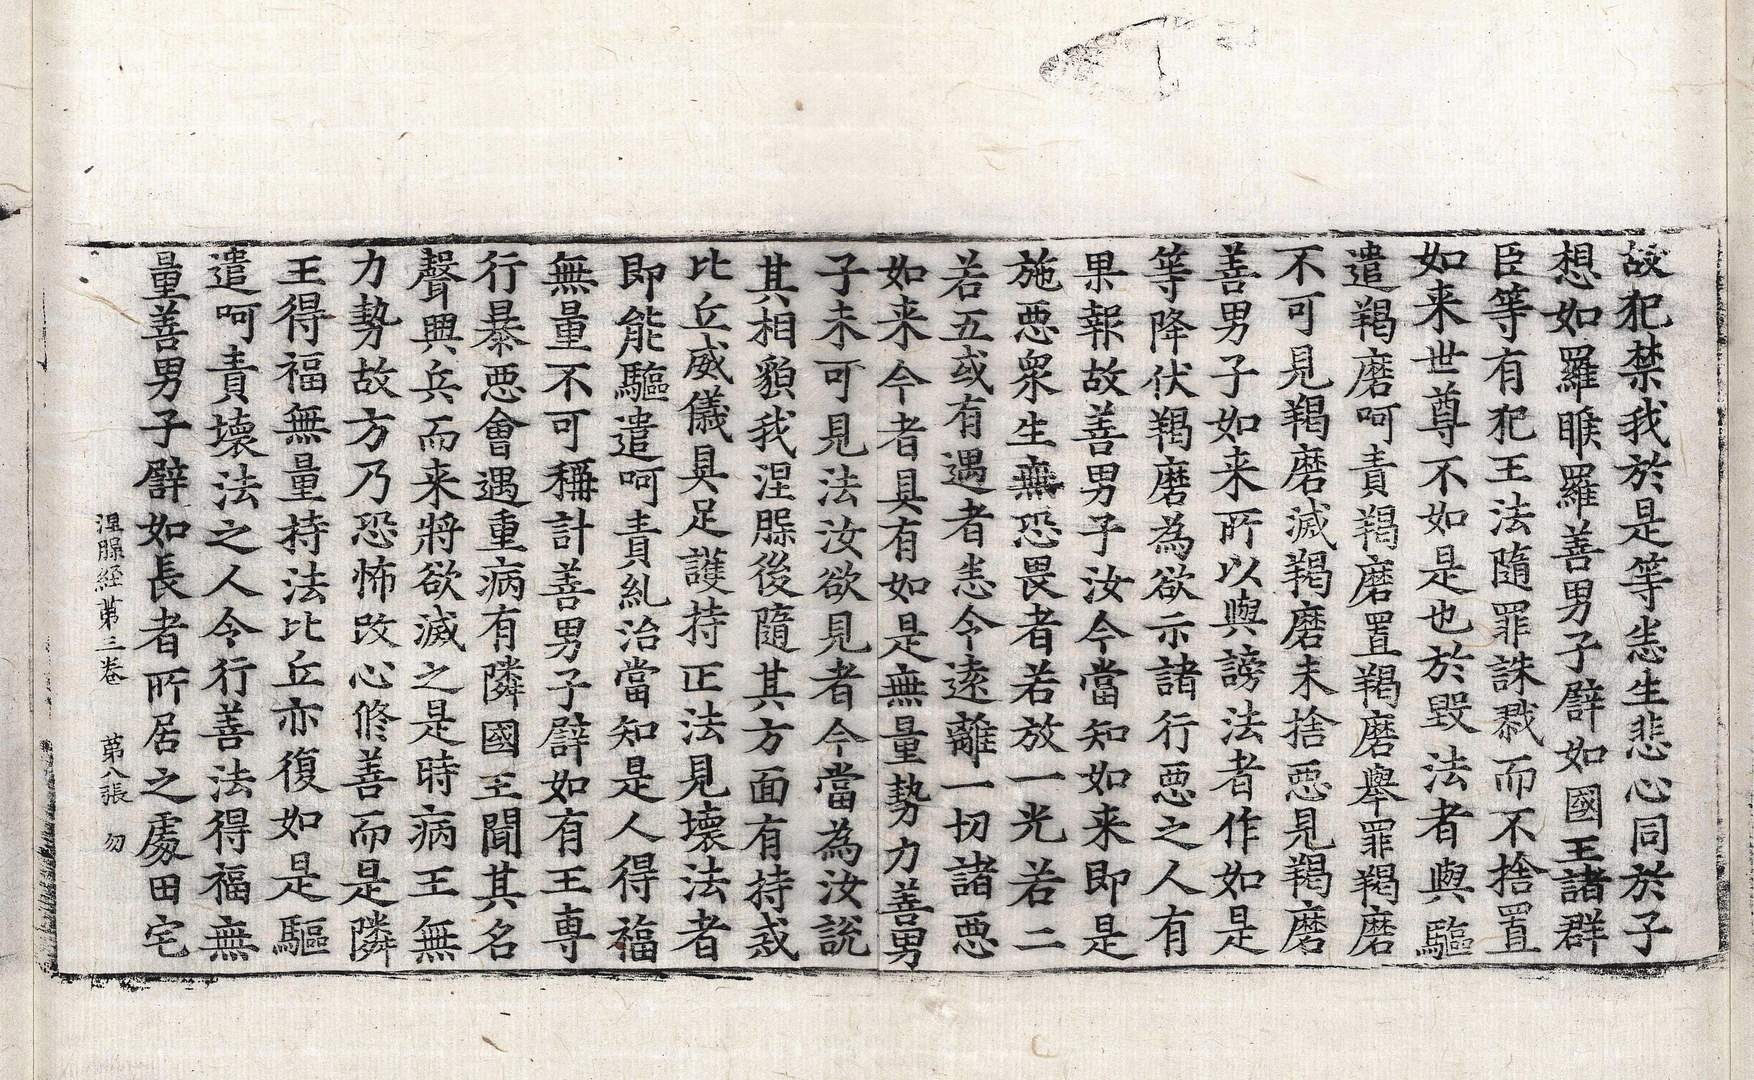 故犯禁我於是等恙生悲心同於子
想如羅睺羅善男子譬如國王諸群
臣等有犯王法隨罪誅戮而不捨置
如来世尊不如是也於毀法者與驅
遣羯磨呵責羯磨置羯磨舉罪羯磨
不可見羯磨滅羯磨未捨惡見羯磨
善男子如来所以與謗法者作如是
等降伏羯磨為欲示諸行惡之人有
果報故善男子汝今當知如来即是
施惡衆生無恐畏者若放一光若二
若五或有遇者恙令遠離一切諸惡
如来今者具有如是無量勢力善男
子未可見法汝欲見者今當為汝說
其相貌我涅槃後隨其方面有持戒
比丘威儀具足護持正法見壞法者
即能驅遣呵責糺治當知是人得福
無量不可稱計善男子譬如有王専
行暴惡會遇重病有隣國王聞其名
聲興兵而来將欲滅之是時病王無
力勢故方乃恐怖改心修善而是隣
王得福無量持法比丘亦復如是驅
遣呵責壞法之人令行善法得福無
量善男子譬如長者所居之處田宅
涅槃経苐三卷 苐八張 勿